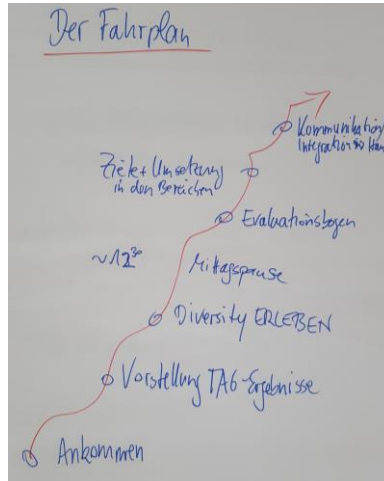 Der Fahrplan
Kommunikation
Ziele + Umsetzung
in den Bereichen
Evaluationsbogen
~12³⁰
Mittagspause
Diversity ERLEBEN
Vorstellung TAG-Ergebnisse
Ankommen